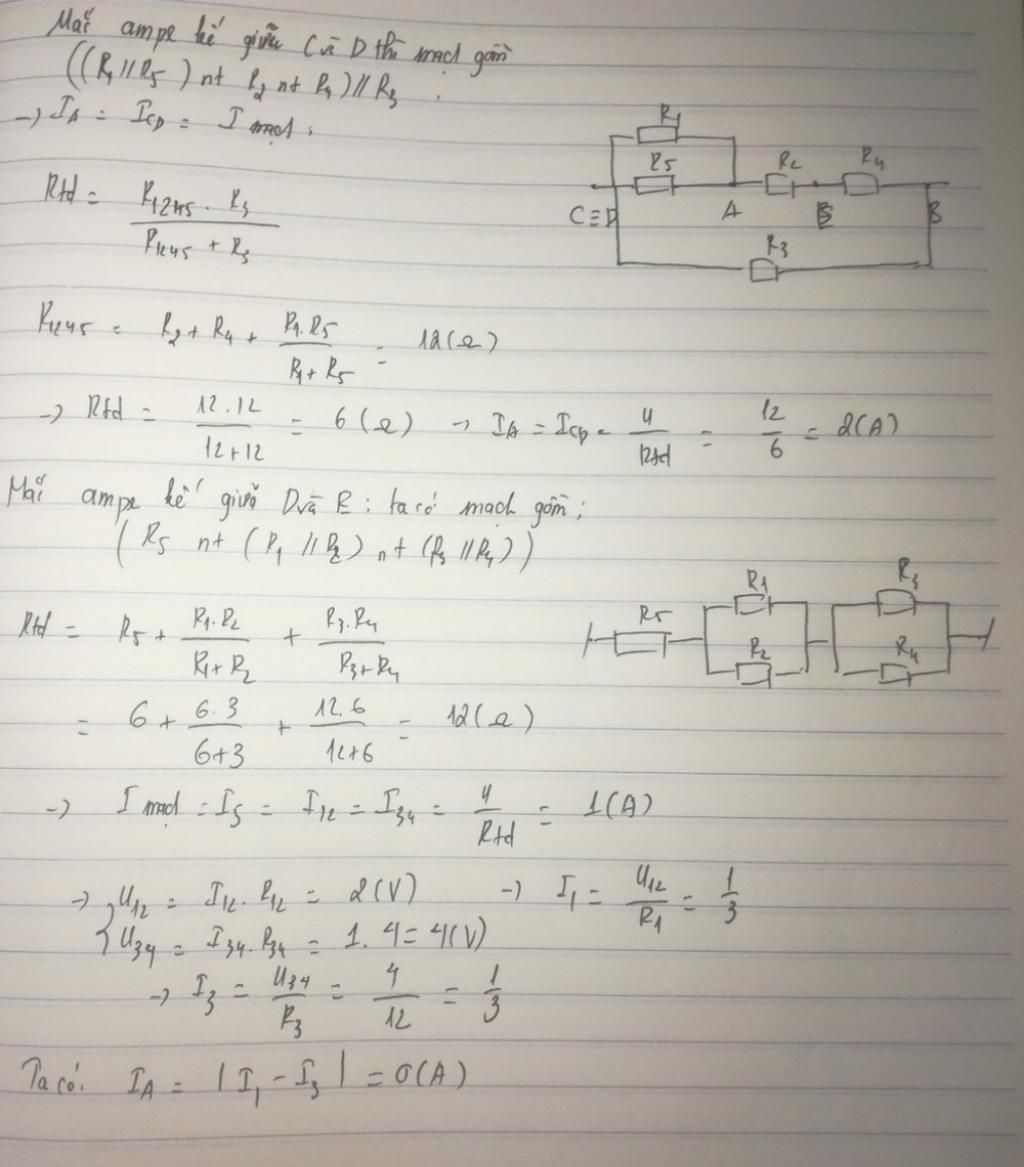 Mắc ampe kế giữa C và D thì mạch gồm
((R1 // R5) nt R2 nt R4) // R3 .
→ IA = ICD = I mạch .
Rtđ = R1245 . R3 / R1245 + R3
R1
R5
R2
R4
C≡D
A
E
B
R3
R1245 = R2 + R4 + R1.R5 / R1 + R5 = 12(Ω)
→ Rtđ = 12.12 / 12+12 = 6(Ω) → IA = ICD = U / Rtđ = 12 / 6 = 2(A)
Mắc ampe kế giữa D và E : ta có mạch gồm:
(R5 nt (R1 // R2) nt (R3 // R4))
R1
R3
R5
R2
R4
Rtđ = R5 + R1.R2 / R1 + R2 + R3.R4 / R3 + R4
= 6 + 6.3 / 6+3 + 12.6 / 12+6 = 12(Ω)
→ I mạch = I5 = I12 = I34 = U / Rtđ = 1(A)
→ { U12 = I12. R12 = 2(V) → I1 = U12 / R1 = 1 / 3
U34 = I34. R34 = 1. 4 = 4(V)
→ I3 = U34 / R3 = 4 / 12 = 1 / 3
Ta có: IA = | I1 - I3 | = 0(A)